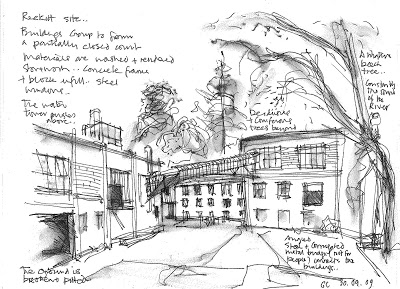 Reckitt site..
Buildings Group to form
a partially closed court
Materials are washed + rendered
stonework.. Concrete frame
+ block infill.. steel
windows..
The water
tower pingles
above..
Deciduous
+ Coniferous
trees beyond
A
beech
tree..
Constantly
the sound
of the
River
The Ground is
broken + pitted
Angled
Steel + Corrugated
metal bridge (not for
people) connects the
buildings..
GC 30.09.09